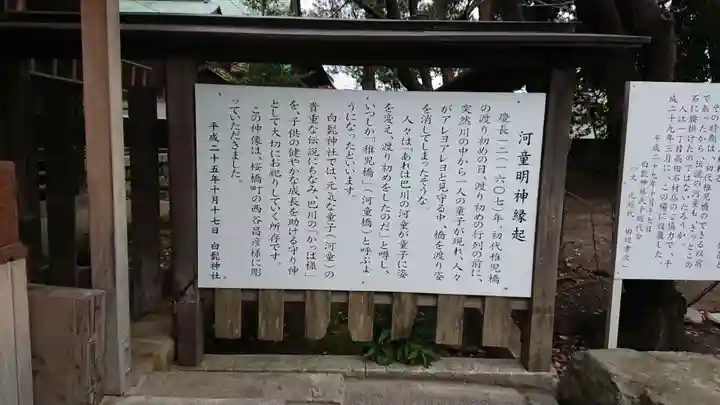 河童明神縁起
慶長一二(一六〇七)年、初代稚児橋
の渡り初めの日、渡り初めの行列の前に、
突然川の中から一人の童子が現れ、人々
がアレヨアレヨと見守る中、橋を渡り姿
を消してしまったそうな。
人々は「あれは巴川の河童が童子に姿
を変え、渡り初めをしたのだ」と噂し、
いつしか「稚児橋」(河童橋)と呼ぶよ
うになったといいます。
白髭神社では、元気な童子(河童)の
貴重な伝説にちなみ、巴川の「かっぱ様」
を、子供の健やかな成長を助ける守り神
として大切にお祀りしていく所存です。
この神像は、桜橋町の西谷昌彦様に彫
っていただきました。
平成二十五年十月十七日 白髭神社
その時期は、初代稚児橋のできる以前
であったから、伝説の河童も、きっとこの
石に腰掛けたのではないだろうか。